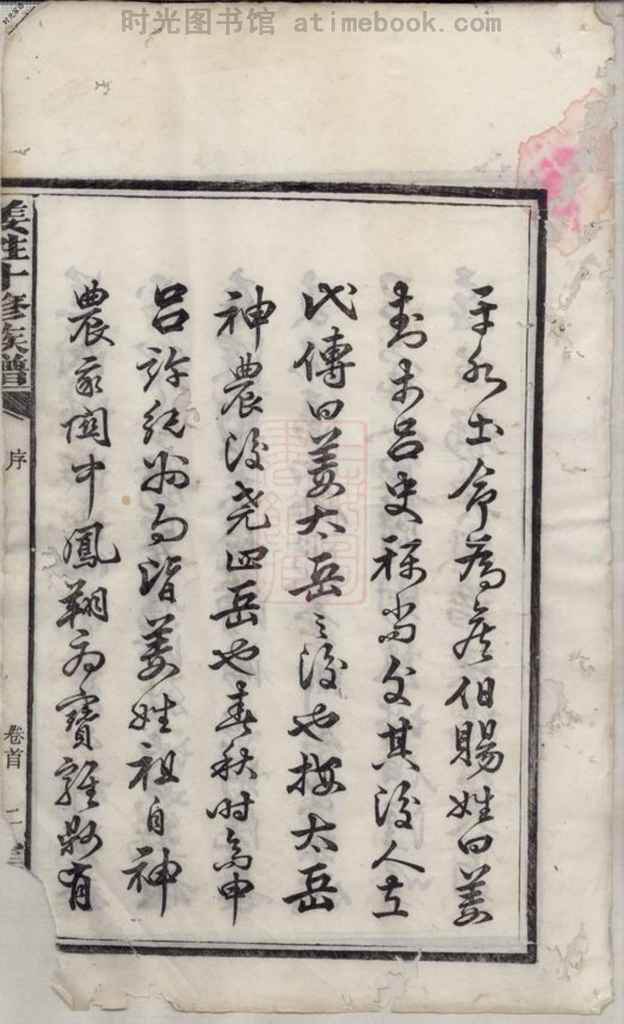 时光图书馆 atimebook.com
平水土命為侯伯賜姓曰姜
封于吕史稱尚父其後人左
氏傳曰姜太岳之後也按太岳
神農後堯四岳也春秋時齊申
吕許紀州向皆姜姓祖自神
農家関中鳳翔為寶雞縣有
姜姓十修族譜
序
卷首
二